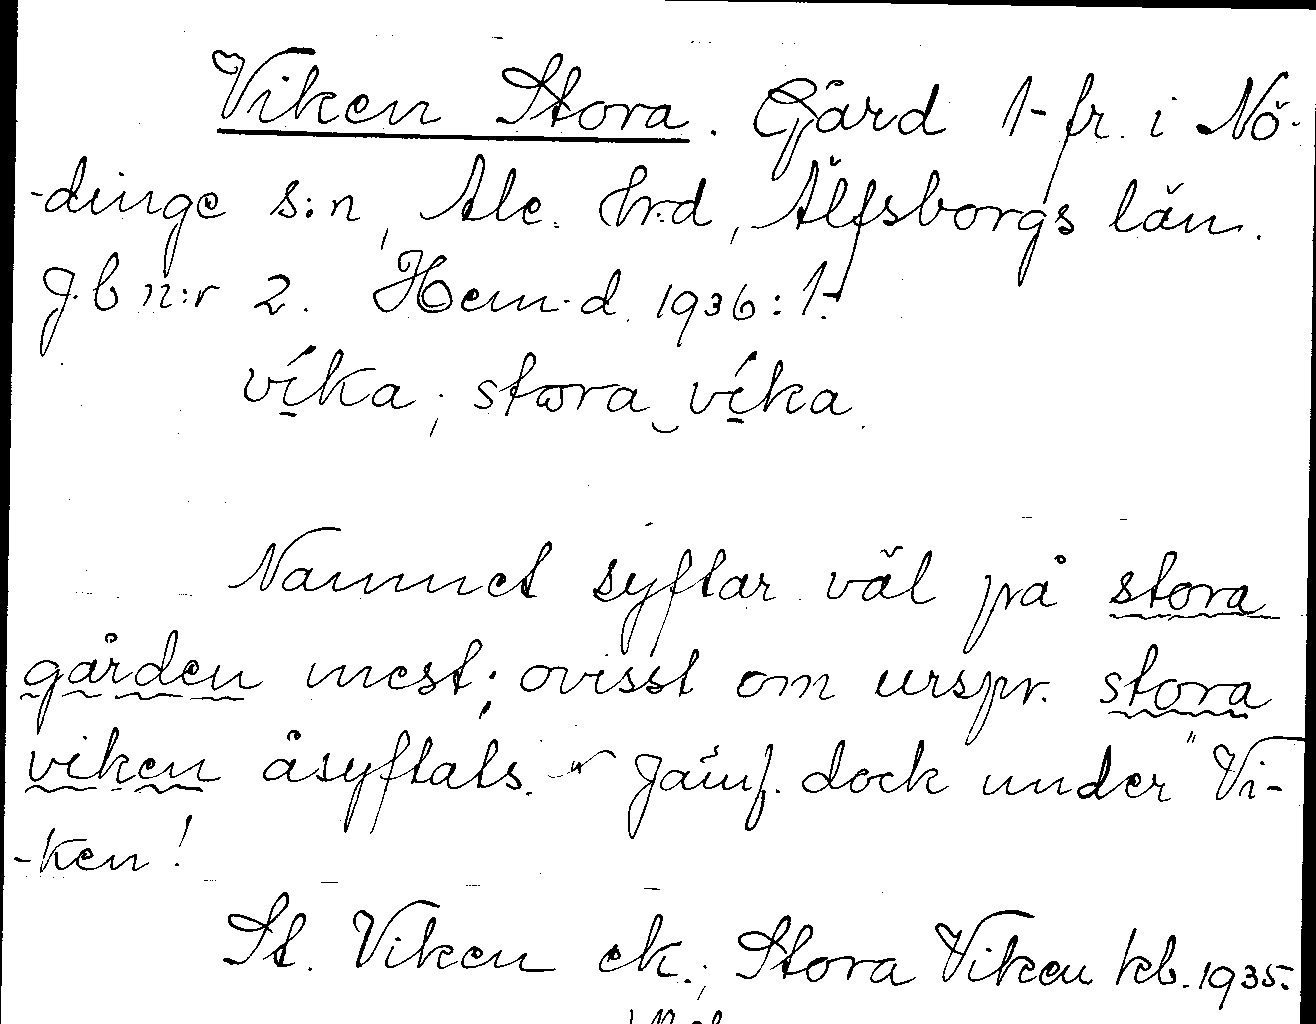 Viken Stora. Gård 1 fr. i Nö-
-dinge s:n, Ale. hrd, Älfsborgs län.
J.b n:r 2. Hem.d. 1936: 1.
víka; stora víka.
Namnet syftar väl på stora
gården mest; ovisst om urspr. stora
viken åsyftats. Jämf. dock under "Vi-
-ken!
St. Viken ek.; Stora Viken kb. 1935.